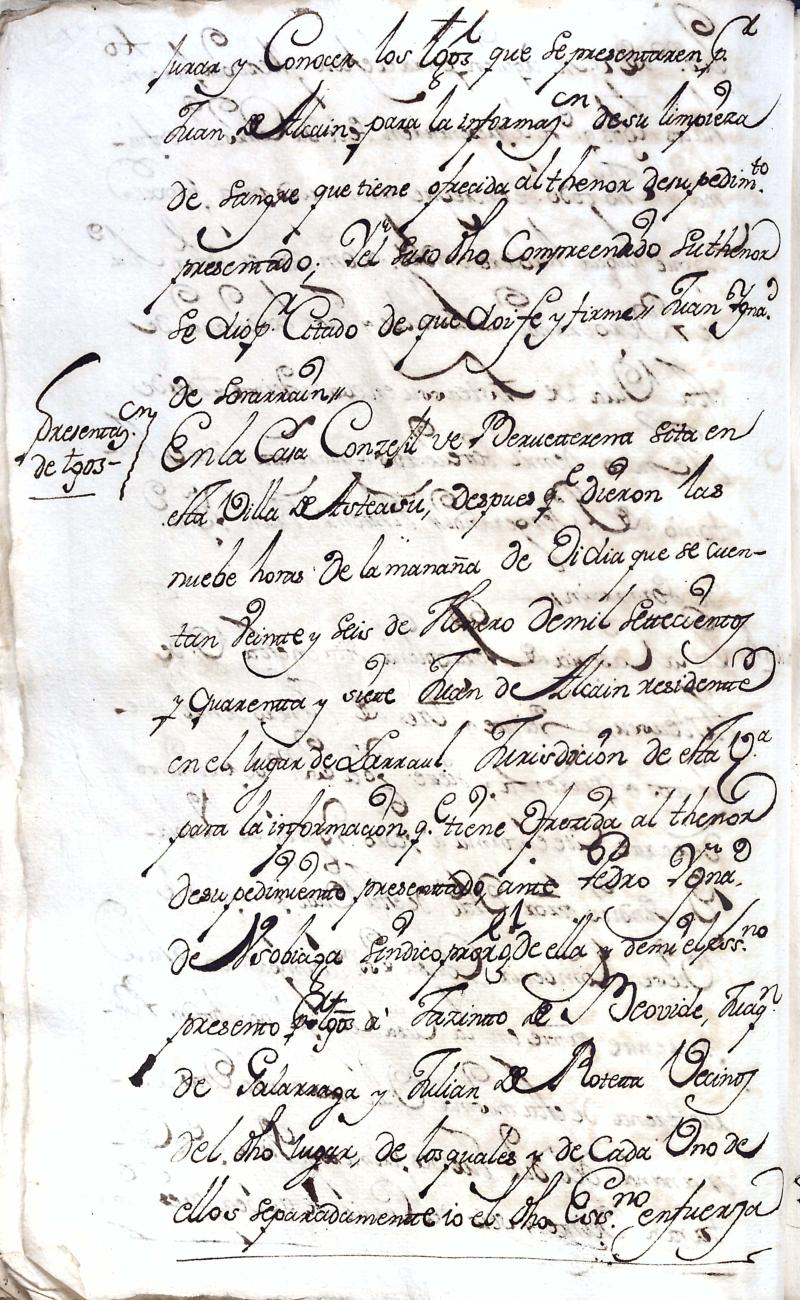 Jurar y Conocer los tgos que se presentaren p.r
Juan de Alcain para la informaz.on de su limpieza
de sangre que tiene ofrecida al thenor de su pedim.to
presentado; Y el suso dho Compreendido su thenor
se dio p.r Citado de que doi fe y firme Juan Ygna.o
de Sorarrain
Presentaz.on
de tgos
En la Casa Conzejl de Beruetterena sita en
esta Villa de Asteasu, despues q.e dieron las
nuebe horas de la mañana de Oi dia que se cuen-
tan Veintte y seis de Henero de mil settecientos
y Quarentta y siette Juan de Alcain residentte
en el lugar de Larraul Jurisdicion de esta V.a
para la informacion q.e tiene Ofrezida al thenor
de su pedimiento presenttado, ante Pedro Ygna.o
de Ysobiaga Sindico pror gl de ella y de mi el ess.no
presento por tgos a Jazintto de Beovide, Juaq.n
de Galarraga y Julian de Rotetta Vecinos
del dho lugar, de los quales y de Cada Uno de
ellos separadamentte io el dho Ess.no en fuerza